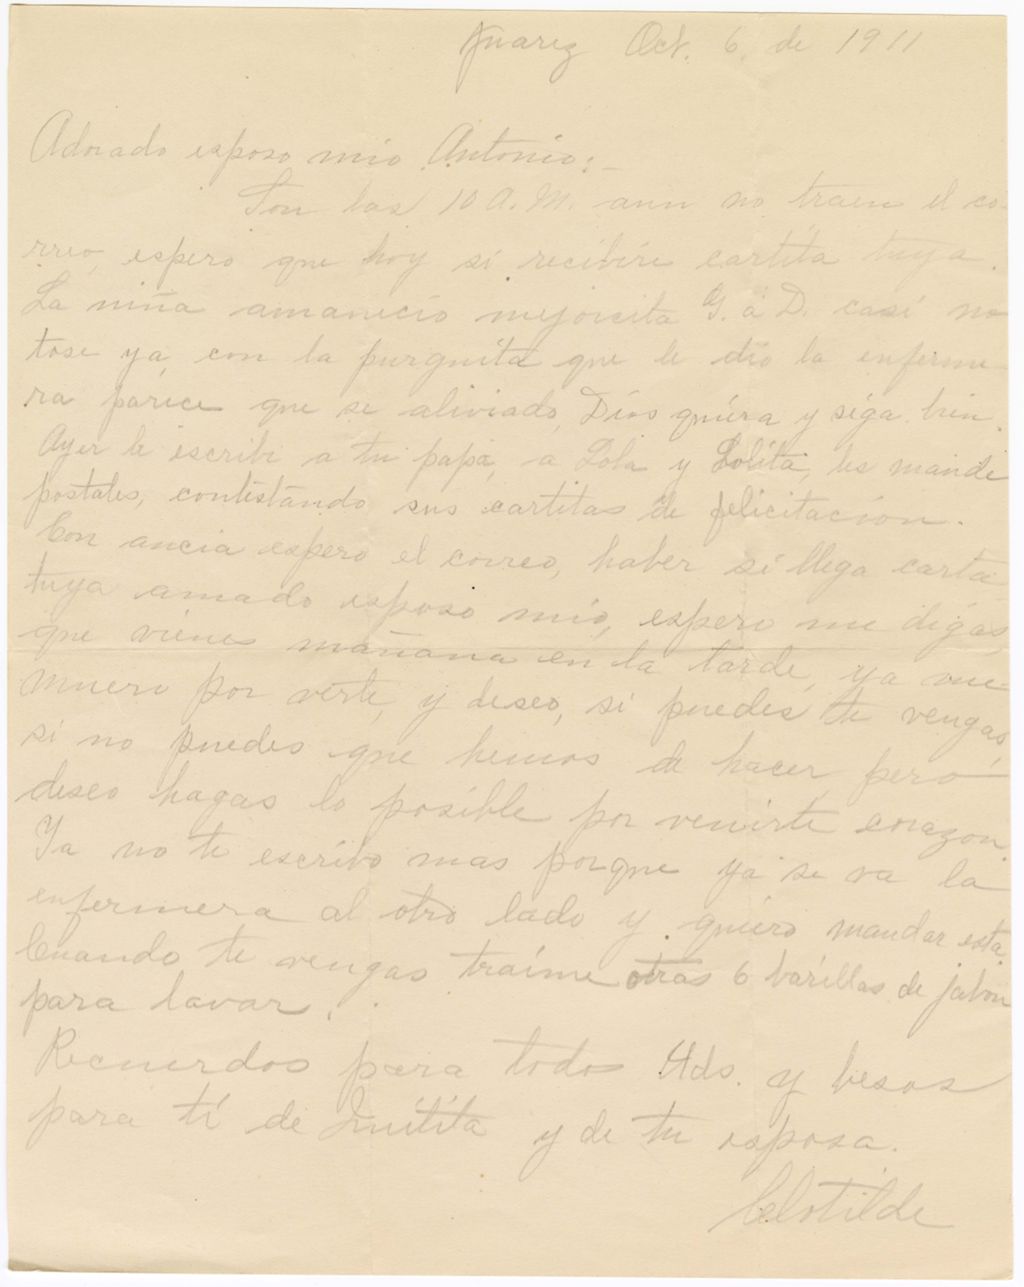 Juarez Oct. 6 de 1911
Adorado esposo mio Antonio:-
Son las 10 A.M. aun no traen el co-
rreo, espero que hoy si recibire cartita tuya.
La niña amanecio mejorcita G. á D. casi no
tose ya, con la purguita que le dio la enferme-
ra parece que se aliviado, Dios quiera y siga bien.
Ayer le escribi a tu papá, a Lola y Lolita, les mande
postales, contestando sus cartitas de felicitacion.
Con ancia espero el correo, haber si llega carta
tuya amado esposo mio, espero me digas
que vienes mañana en la tarde, ya me
muero por verte, y deseo, si puedes te vengas,
si no puedes que hemos de hacer, pero
deseo hagas lo posible por venirte corazon.
Ya no te escribo mas porque ya se va la
enfermera al otro lado y quiero mandar esta.
Cuando te vengas traime otras 6 barillas de jabon
para lavar.
Recuerdos para todos Uds. y besos
para tí de y de tu esposa.
Clotilde